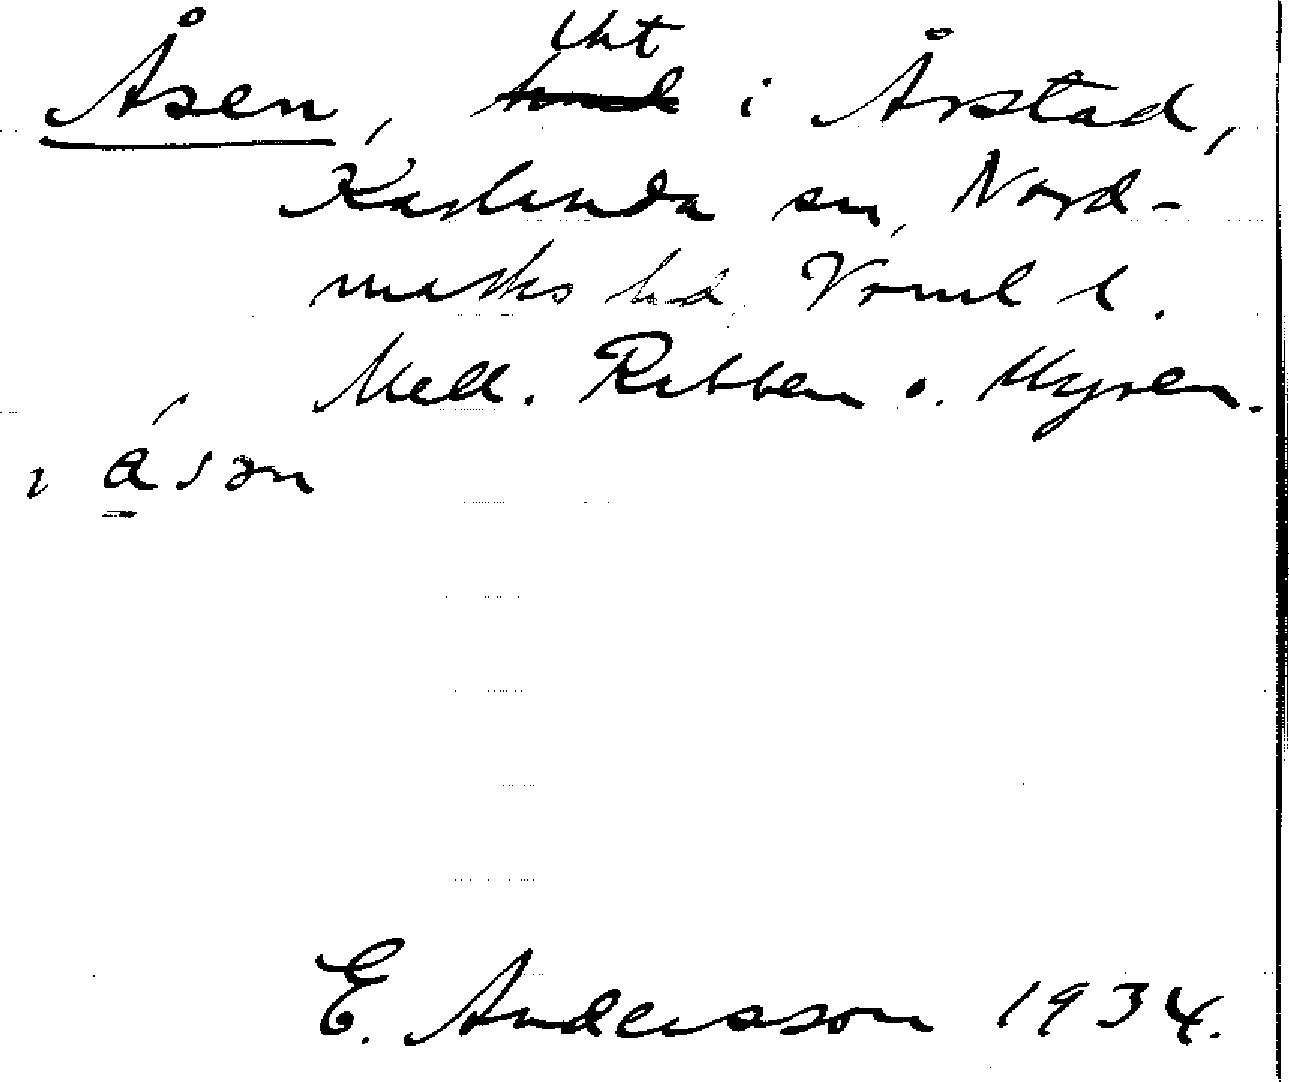 Åsen, lht i Årstad,
Karlanda sn, Nord-
marks hd, Vrml l.
Mell. Rebben o. Myren.
i åsən
E. Andersson 1934.